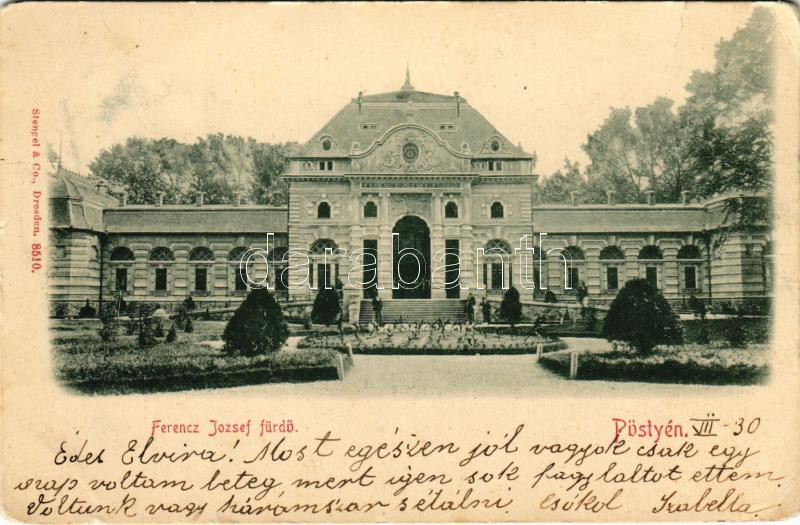 FERENCZ JÓZSEF FÜRDŐ
darabanth
Stengel & Co., Dresden. 8510.
Ferencz Jozsef fürdö.
Pöstyén. VII - 30
Édes Elvira! Most egészen jól vagyok csak egy
nap voltam beteg mert igen sok fagylaltot ettem.
Voltunk vagy háromszor sétálni. Csókol Izabella